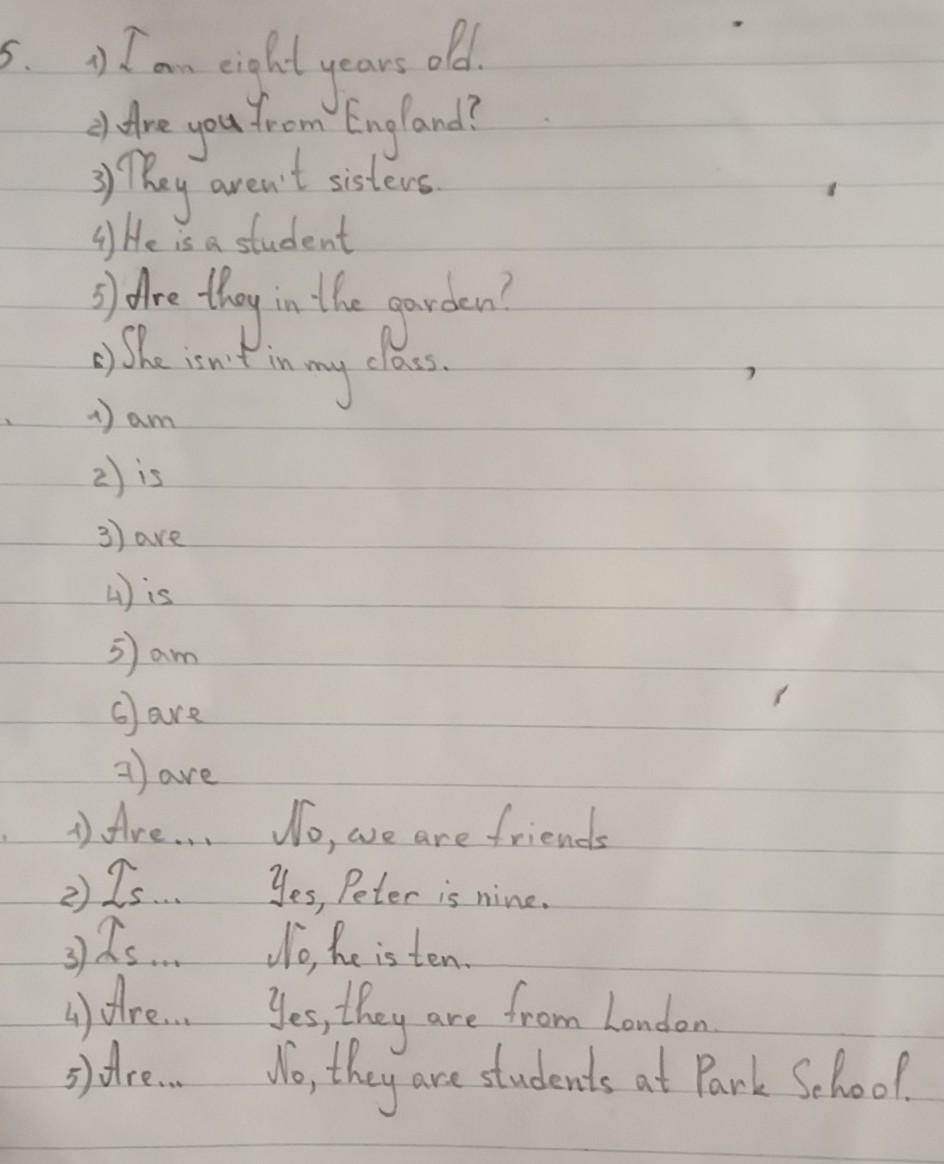 5. 1) I am eight years old.
2) Are you from England?
3) They aren't sisters.
4) He is a student
5) Are they in the garden?
6) She isn't in my class.
1) am
2) is
3) are
4) is
5) am
6) are
7) are
1) Are... No, we are friends
2) Is... Yes, Peter is nine.
3) Is... No, he is ten.
4) Are... Yes, they are from London.
5) Are... No, they are students at Park School.